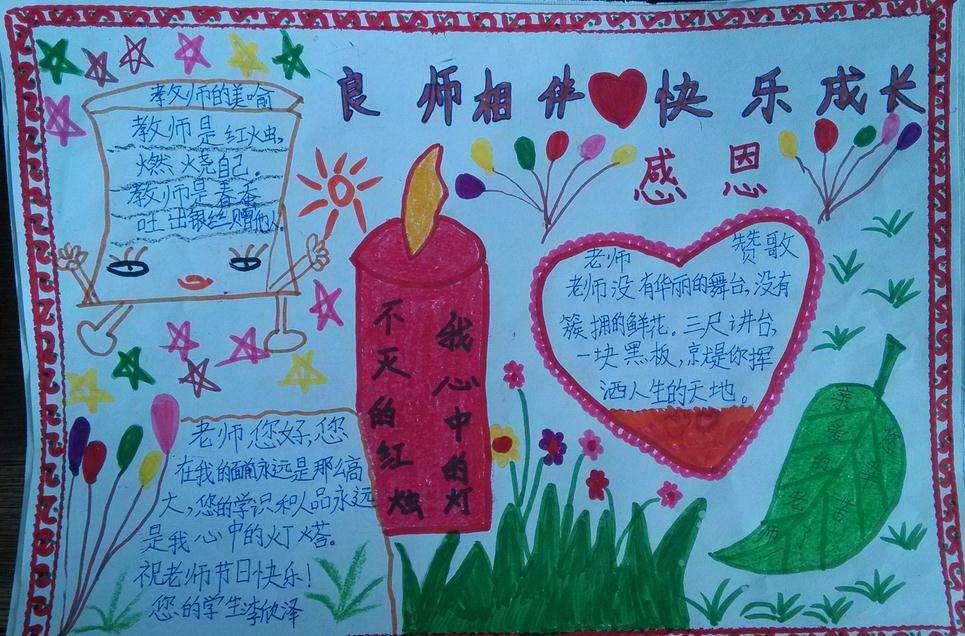 良师相伴快乐成长
感恩
教师的美喻
教师是红火虫,
燃烧自己。
教师是春蚕
吐出银丝赠他人
不灭的红烛
我心中的灯
老师
赞歌
老师没有华丽的舞台,没有
簇拥的鲜花。三尺讲台,
一块黑板,就是你挥
洒人生的天地。
老师您好,您
在我的面前永远是那么高
大,您的学识和人品永远
是我心中的灯塔。
祝老师节日快乐!
您的学生李欣泽